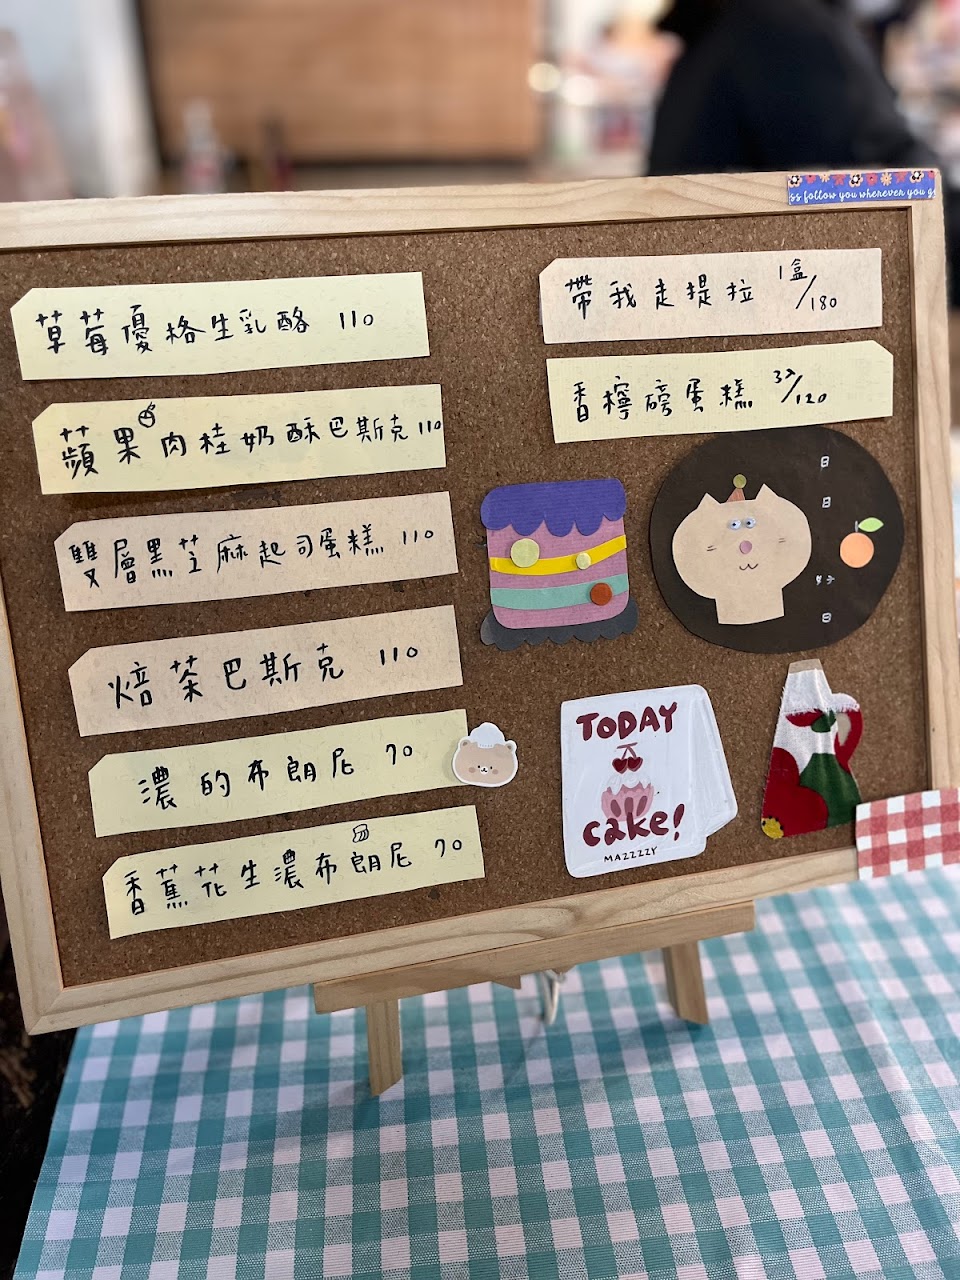 ss follow you wherever you g
草莓優格生乳酪 110
蘋果肉桂奶酥巴斯克 110
雙層黑芝麻起司蛋糕 110
焙茶巴斯克 110
濃的布朗尼 70
香蕉花生濃布朗尼 70
帶我走提拉 1盒/180
香檸磅蛋糕 3入/120
日
日
好
日
TODAY
cake!
MAZZZZY